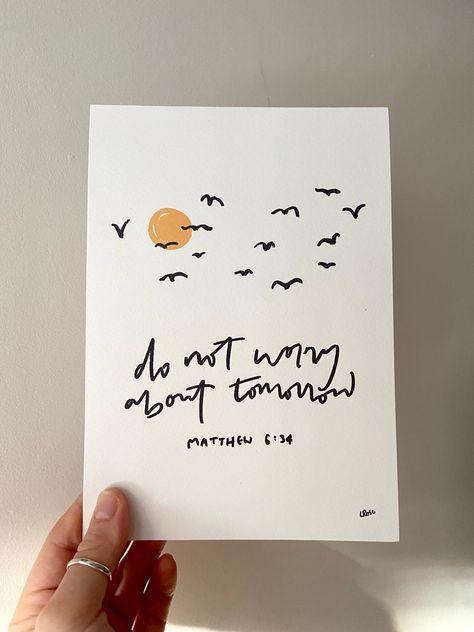 do not worry
about tomorrow
MATTHEW 6:34